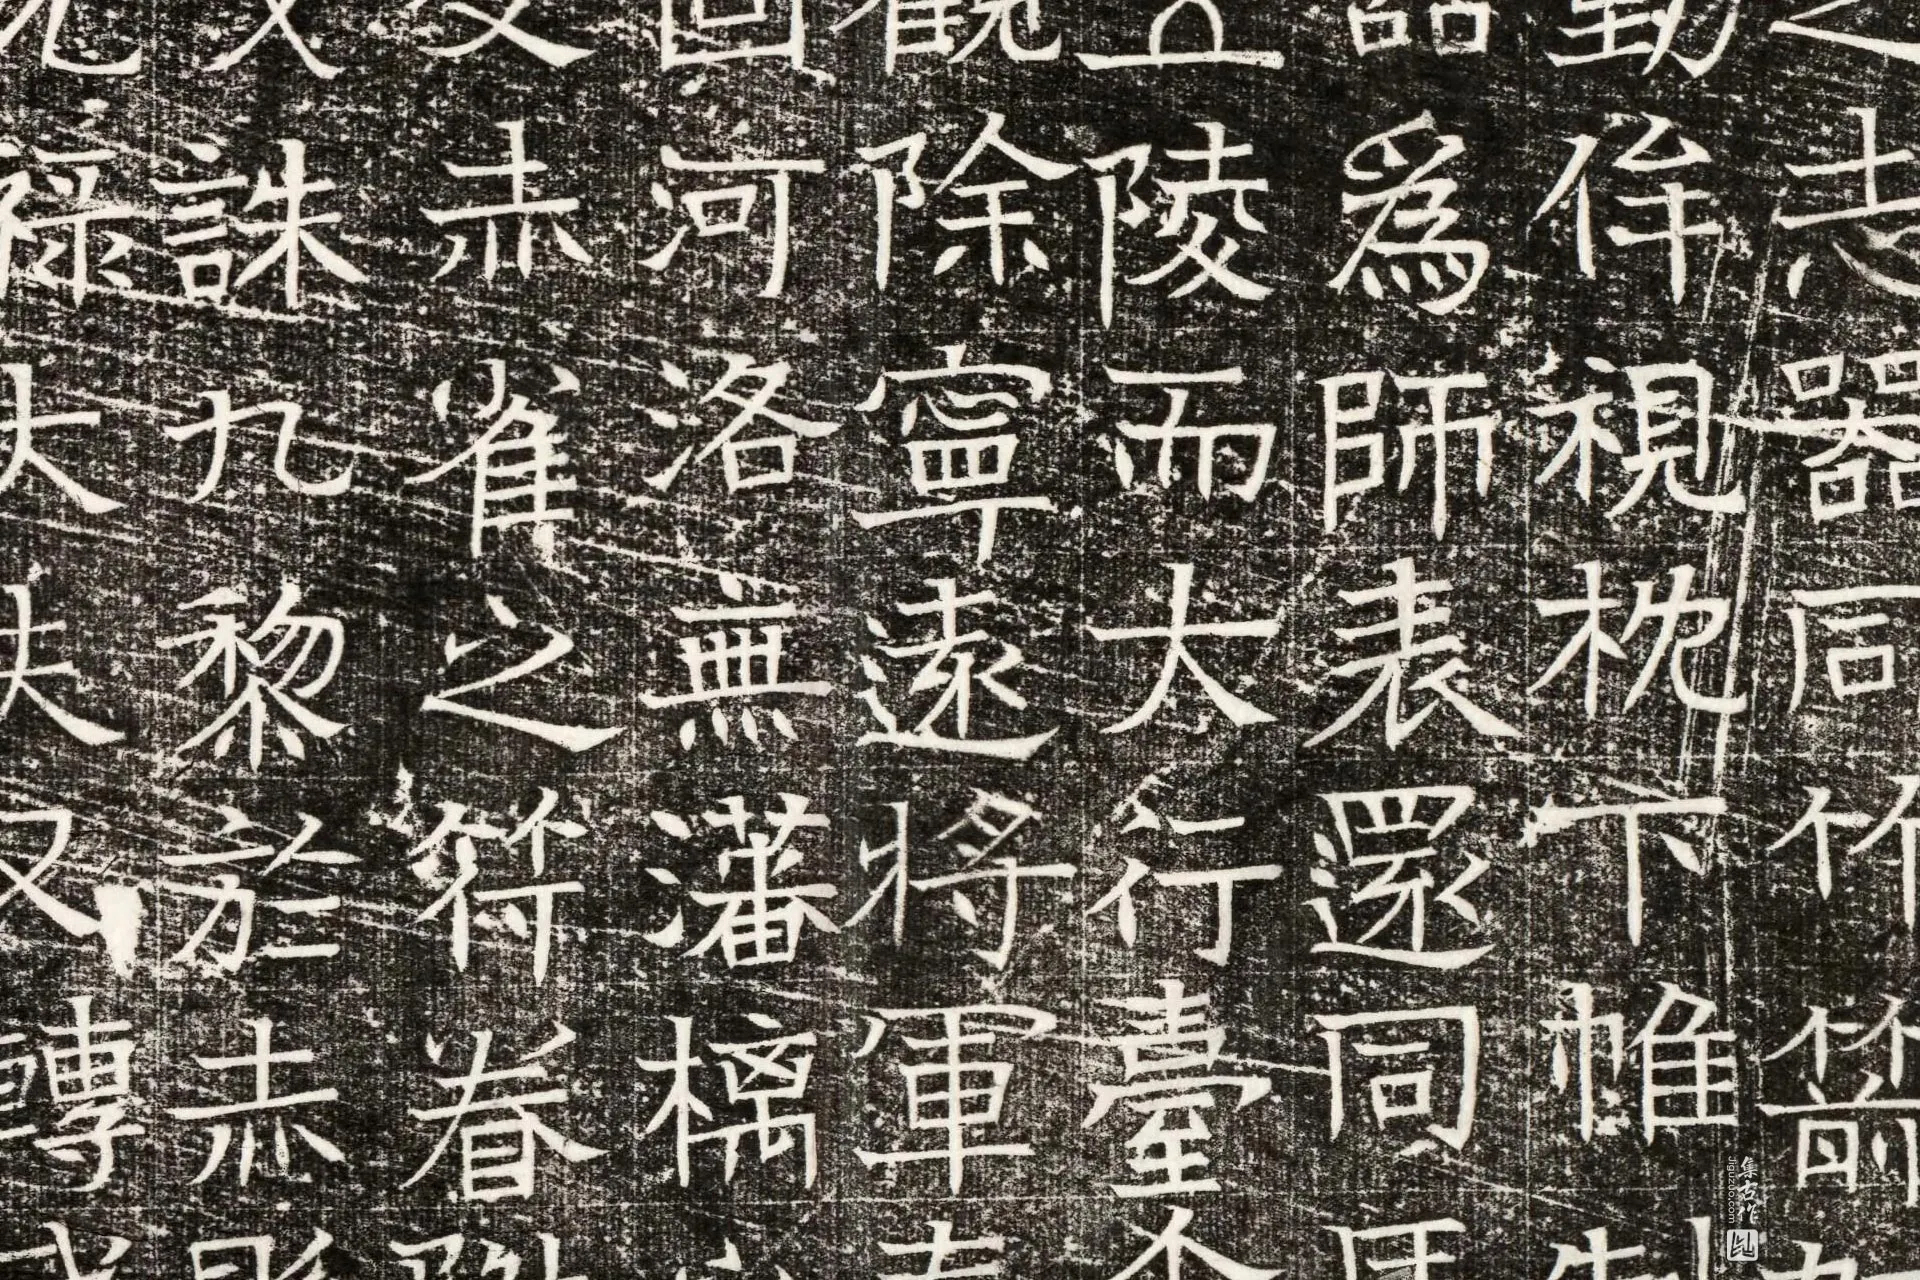 之志器同竹箭
勤侔視枕下帷
器爲師表還同
五陵而太行臺
觀除寧遠將軍
圖河洛無藩樆
文赤雀之符眷
誅九黎於赤
祿大夫又轉
集古作
jiguzuo.com